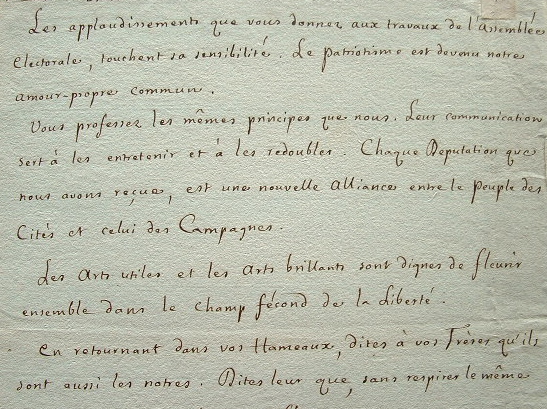 Les applaudissements que vous donnez aux travaux de l'assemblée
Electorale, touchent sa sensibilité. Le patriotisme est devenu notre
amour-propre commun.
Vous professez les mêmes principes que nous. Leur communication
sert à les entretenir et à les redoubler. Chaque Députation que
nous avons reçue, est une nouvelle alliance entre le peuple des
Cités et celui des Campagnes.
Les arts utiles et les arts brillants sont dignes de fleurir
ensemble dans le champ fécond de la Liberté.
En retournant dans vos Hameaux, dites à vos Frères qu'ils
sont aussi les notres. Dites leur que, sans respirer le même